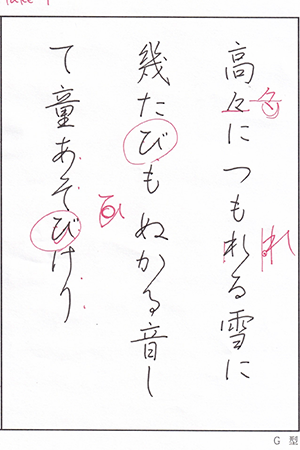 高々につもれる雪に
幾たびもぬかる音し
て童あそびけり
々
れ
び
G 型